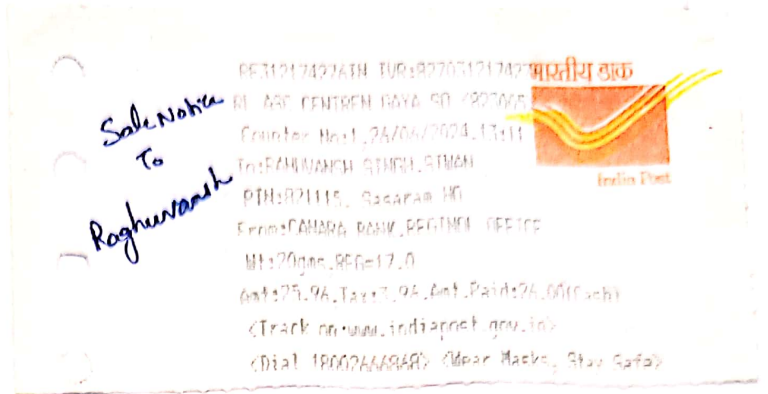 Sale Notice
To
Raghuvansh
भारतीय डाक
India Post
RL ASC CENTREN GAYA SO <823005
Counter No:1,26/06/2024,13:11
To:RAHUVANSH SINGH,SIWAN
PIN:821115, Sasaram HO
From:CANARA BANK,REGINOL OFFICE
Wt:20gms,REG=17.0
Amt:25.96,Tax:3.96,Amt.Paid:26.00(Cash)
<Track on www.indiapost.gov.in>
<Dial 18002666868> <Wear Masks, Stay Safe>